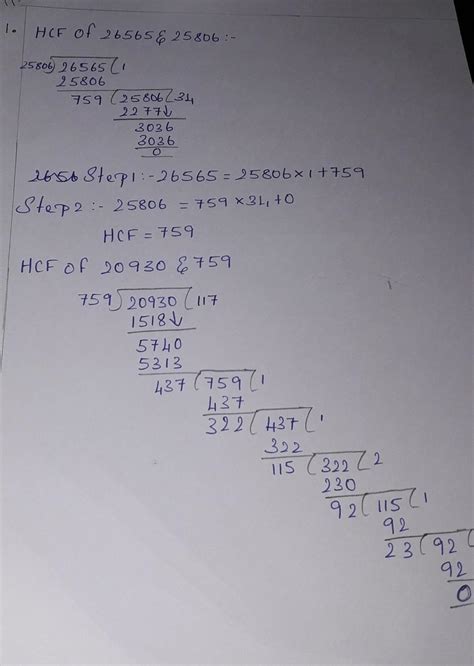 1. HCF of 26565 & 25806 :-
25806) 26565 ( 1
25806
759 ( 25806 ( 34
2277↓
3036
3036
0
Step 1 :- 26565 = 25806 × 1 + 759
Step 2 :- 25806 = 759 × 34 + 0
HCF = 759
HCF of 20930 & 759
759) 20930 ( 117
1518↓
5740
5313
437 ( 759 ( 1
437
322 ( 437 ( 1
322
115 ( 322 ( 2
230
92 ( 115 ( 1
92
23 ( 92 (
92
0